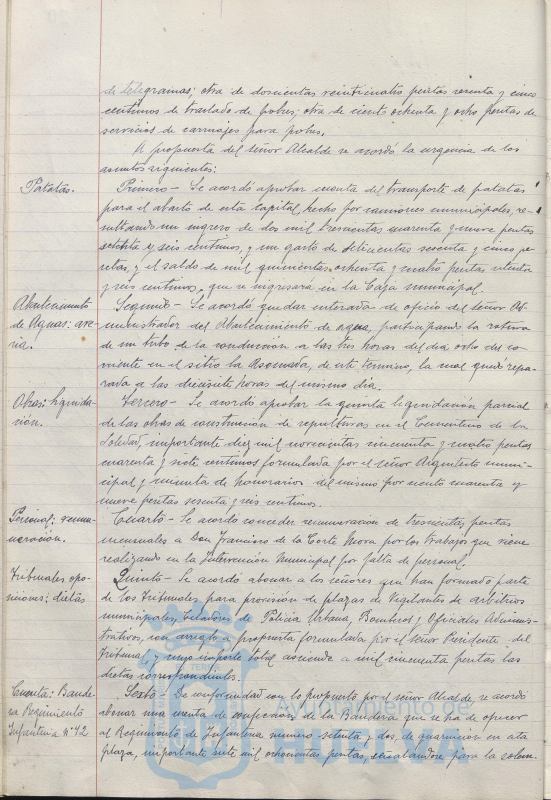 de telegramas; otra de doscientas veinticuatro pesetas sesenta y cinco
centimos de traslado de pobres; otra de ciento ochenta y ocho pesetas de
servicios de carruajes para pobres.
A propuesta del señor Alcalde se acordó la urgencia de los
asuntos siguientes:
Patatas.
Primero - Se acordó aprobar cuenta del transporte de patatas
para el abasto de esta Capital, hecho por camiones municipales, re-
sultando un ingreso de dos mil trescientas cuarenta y nueve pesetas
setenta y seis centimos, y un gasto de setecientas sesenta y cinco pe-
setas, y el saldo de mil quinientas ochenta y cuatro pesetas setenta
y seis centimos, que se ingresara en la Caja municipal.
Abastecimiento
de Aguas: ave-
ria.
Segundo - Se acordó quedar enterada de oficio del señor Ad-
ministrador del Abastecimiento de agua, participando la rotura
de un tubo de la conducción a las tres horas del dia ocho del co-
rriente en el sitio la Asomada, de este termino, la cual quedó repa-
rada a las diecisiete horas del mismo dia.
Obras: liquida-
ción.
Tercero - Se acordó aprobar la quinta liquidación parcial
de las obras de construcción de sepulturas en el Cementerio de la
Soledad, importante diez mil novecientas cincuenta y cuatro pesetas
cuarenta y siete centimos formulada por el señor Arquitecto munici-
cipal y minuta de honorarios del mismo por ciento cuarenta y
nueve pesetas sesenta y seis centimos.
Personal: remu-
neración.
Cuarto - Se acordó conceder remuneración de trescientas pesetas
mensuales a Don Francisco de la Corte Mora por los trabajos que viene
realizando en la Intervención Municipal por falta de personal.
Tribunales opo-
siciones; dietas
Quinto - Se acordó abonar a los señores que han formado parte
de los tribunales, para provisión de plazas de Vigilantes de arbitrios
municipales, Celadores de Policia Urbana, Bomberos y Oficiales Adminis-
trativos, con arreglo a propuesta formulada por el señor Presidente del
Tribunal, y cuyo importe total asciende a mil cincuenta pesetas las
dietas correspondientes.
Cuenta: Bande-
ra Regimiento
Infanteria nº 72
Sexto - De conformidad con lo propuesto por el señor Alcalde, se acordó
abonar una cuenta de confección de la Bandera que se ha de ofrecer
al Regimiento de Infanteria numero setenta y dos, de guarnicion en esta
plaza, importante siete mil ochocientas pesetas, señalandose para la solem-
Ayuntamiento de